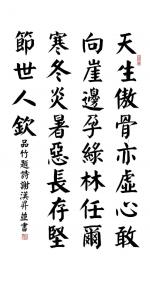 天生傲骨亦虛心敢
向崖邊孕綠林任爾
寒冬炎暑惡長存堅
節世人欽
品竹題詩謝漢昇並書